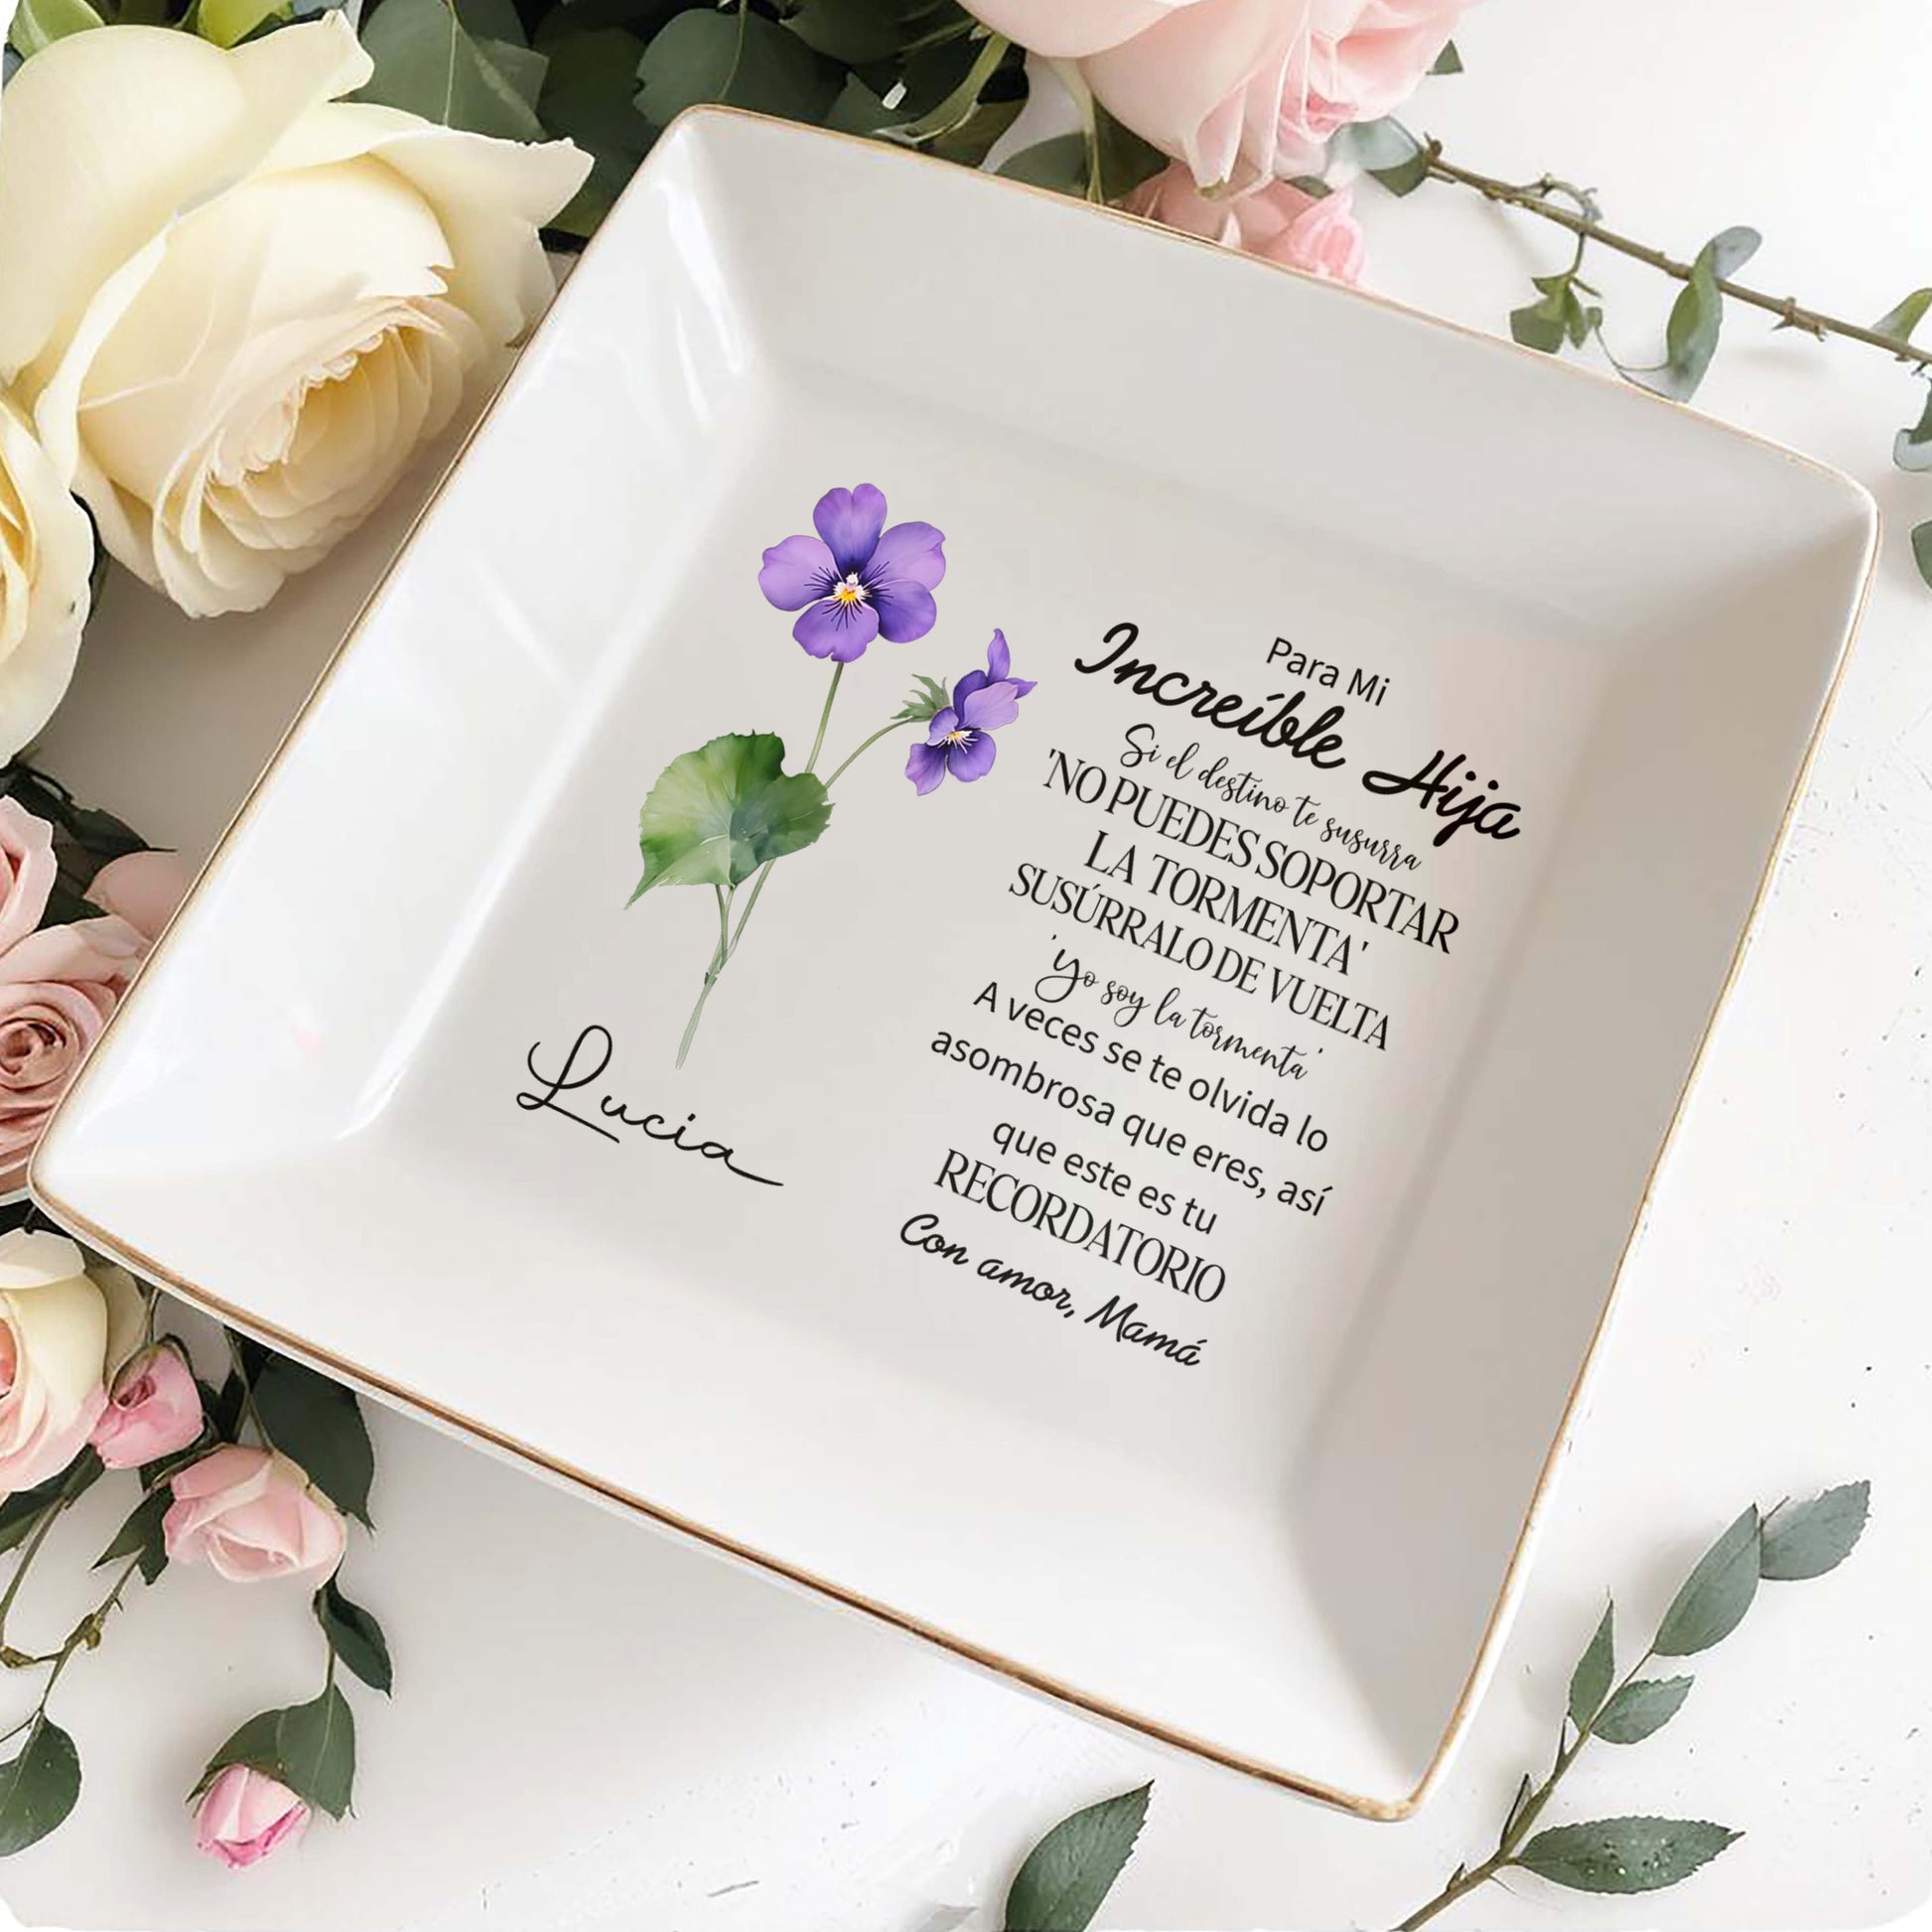 Para Mi
Increíble Hija
Si el destino te susurra
'NO PUEDES SOPORTAR
LA TORMENTA'
SUSÚRRALO DE VUELTA
'Yo soy la tormenta'
A veces se te olvida lo
asombrosa que eres, así
que este es tu
RECORDATORIO
Con amor, Mamá
Lucia